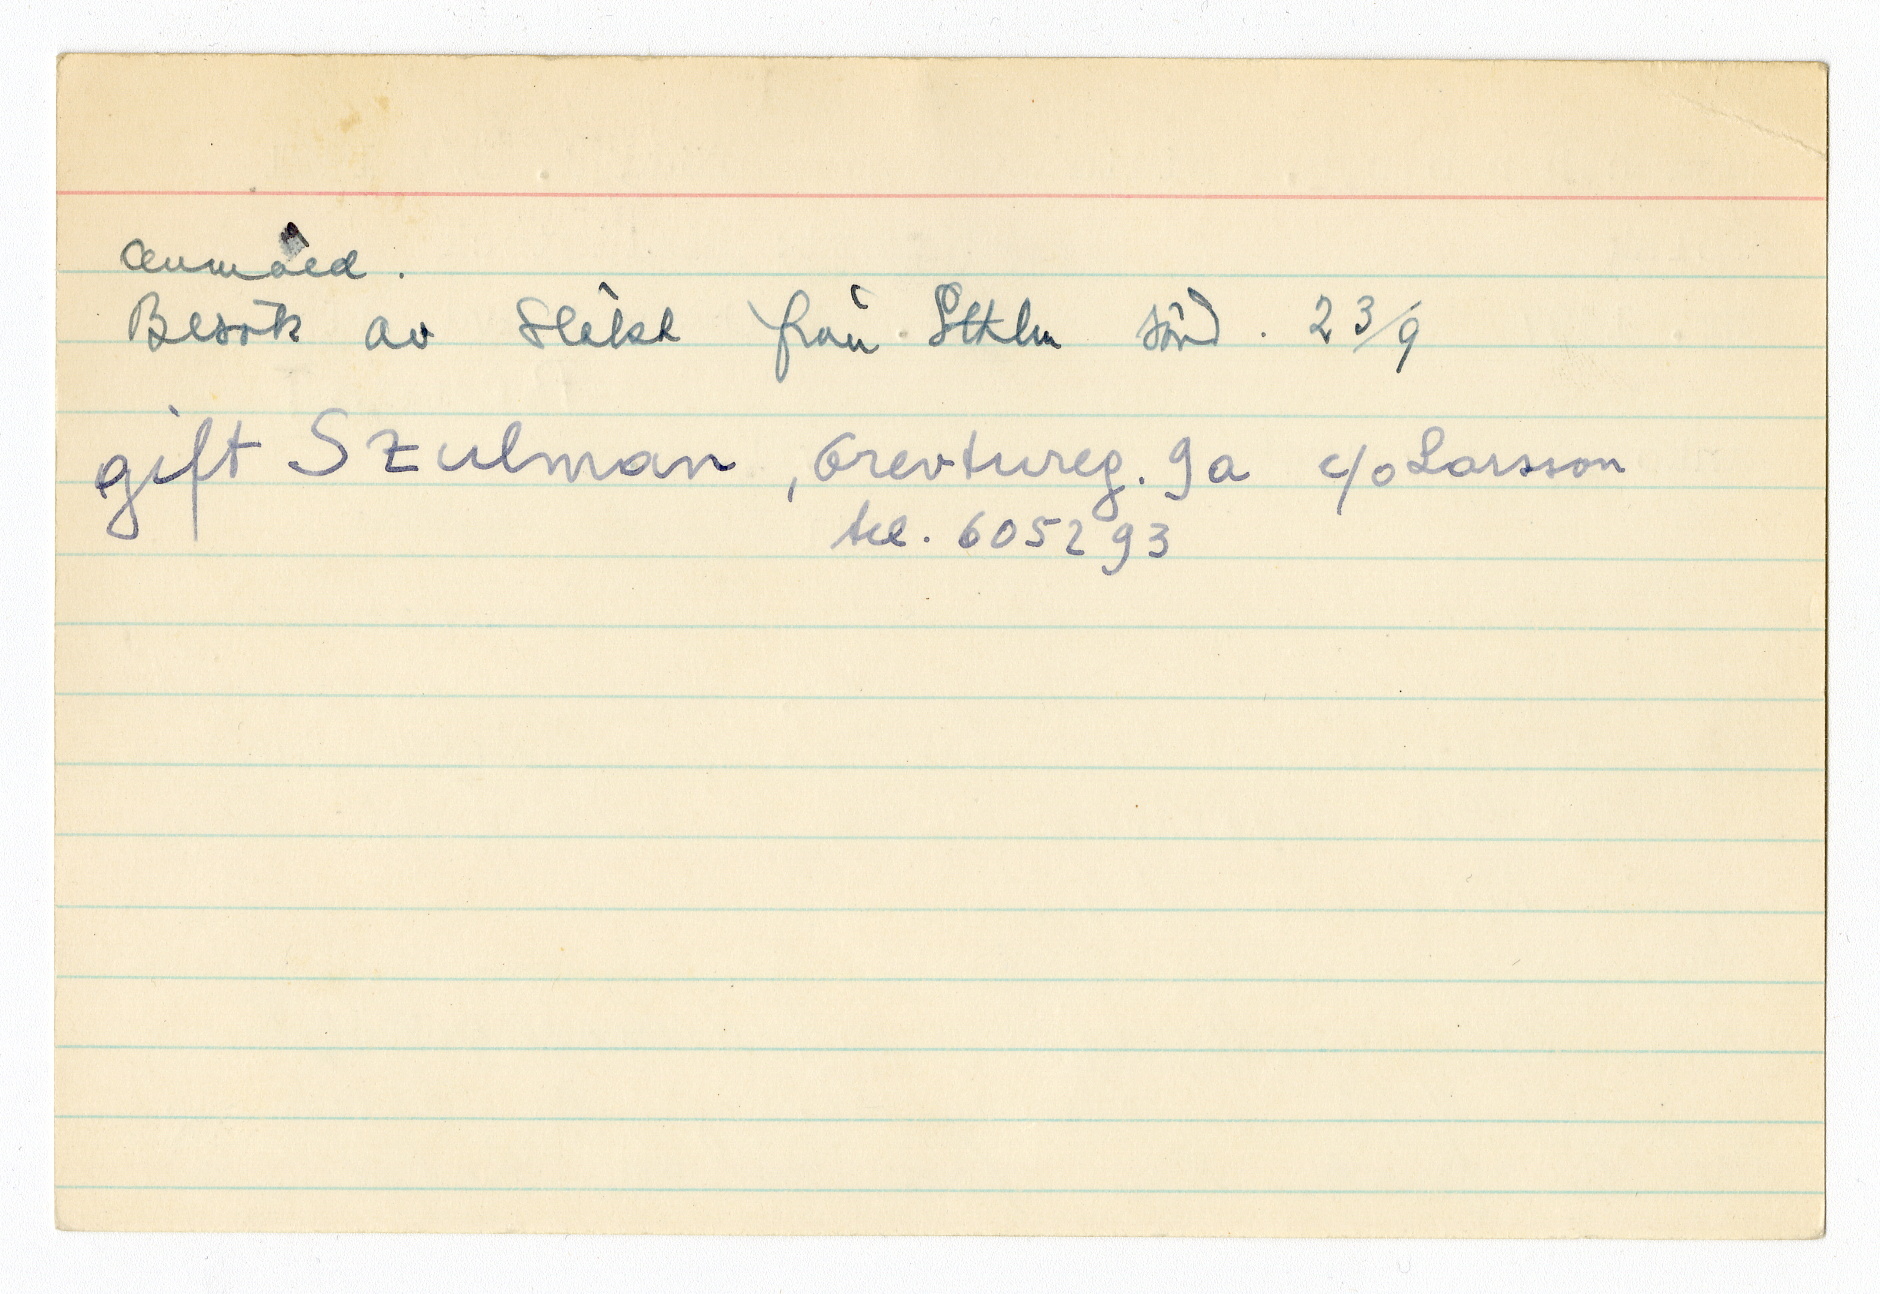 anmäld.
Besök av släkt från Sthlm sönd. 23/9
gift Szulman, Grevtureg. 9a c/o Larsson
tel. 605293